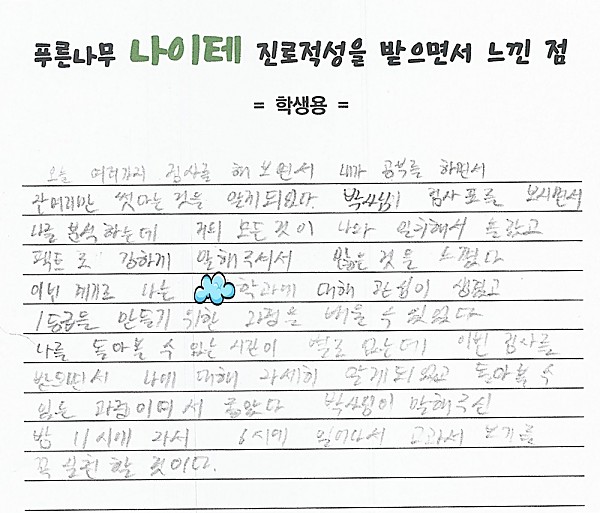 푸른나무 나이테 진로적성을 받으면서 느낀 점
= 학생용 =
오늘 여러가지 검사를 해보면서 내가 공부를 하면서
잔머리만 썼다는 것을 알게되었다. 박사님이 검사 표를 보시면서
나를 분석 하는데 거의 모든 것이 나와 일치해서 놀랐고
팩트로 강하게 말해주셔서 많은 것을 느꼈다
이번 계기로 나는 학과에 대해 관심이 생겼고
1등급을 만들기 위한 과정을 배울 수 있었다
나를 돌아볼 수 있는 시간이 별로 없는데 이번 검사를
받으면서 나에 대해 자세히 알게되었고 돌아볼 수
있는 과정이여서 좋았다 박사님이 말해주신
밤 11시에 자서 6시에 일어나서 교과서 보기를
꼭 실천 할 것이다.